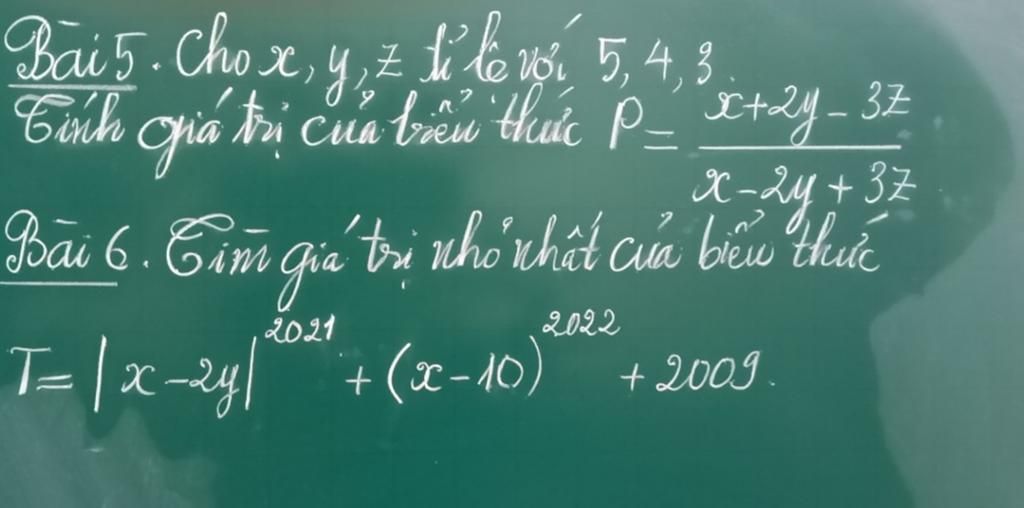 Bài 5. Cho x, y, z tỉ lệ với 5, 4, 3.
Tính giá trị của biểu thức P = \frac{x+2y-3z}{x-2y+3z}
Bài 6. Tìm giá trị nhỏ nhất của biểu thức
T = |x-2y|^{2021} + (x-10)^{2022} + 2009.